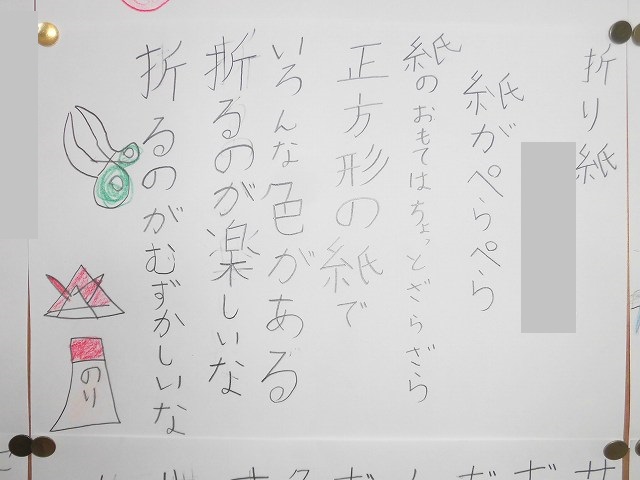 折り紙
紙がぺらぺら
紙のおもてはちょっとざらざら
正方形の紙で
いろんな色がある
折るのが楽しいな
折るのがむずかしいな
のり